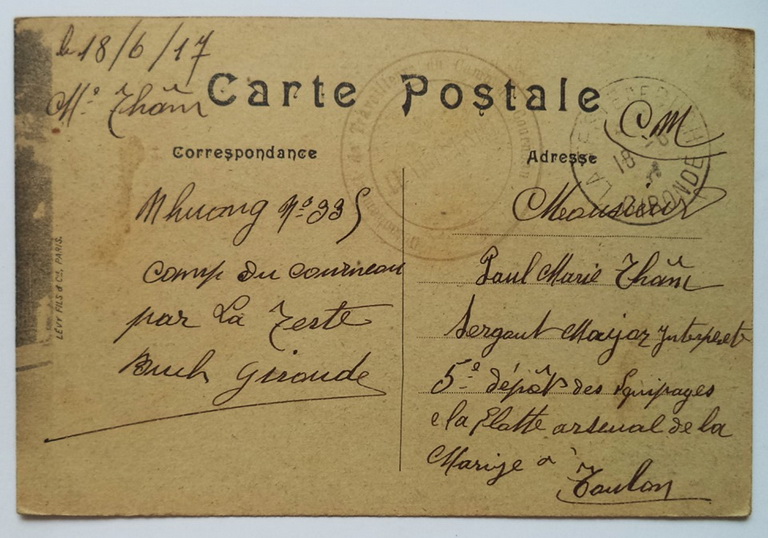 le 18/6/17
Mº Thâm
Carte Postale
CM
Correspondance
Adresse
Nhuong Nº 335
Camp du Courneau
par La Teste
Buch Gironde
Monsieur
Paul Marie Thâm
Sergent Major Interprete
5º dépôts des Equipages
la Flotte arsenal de la
Marine à
Toulon
LÉVY FILS & Cie, PARIS.
Travailleurs du Camp
LA TESTE DE BUCH
18
GIRONDE